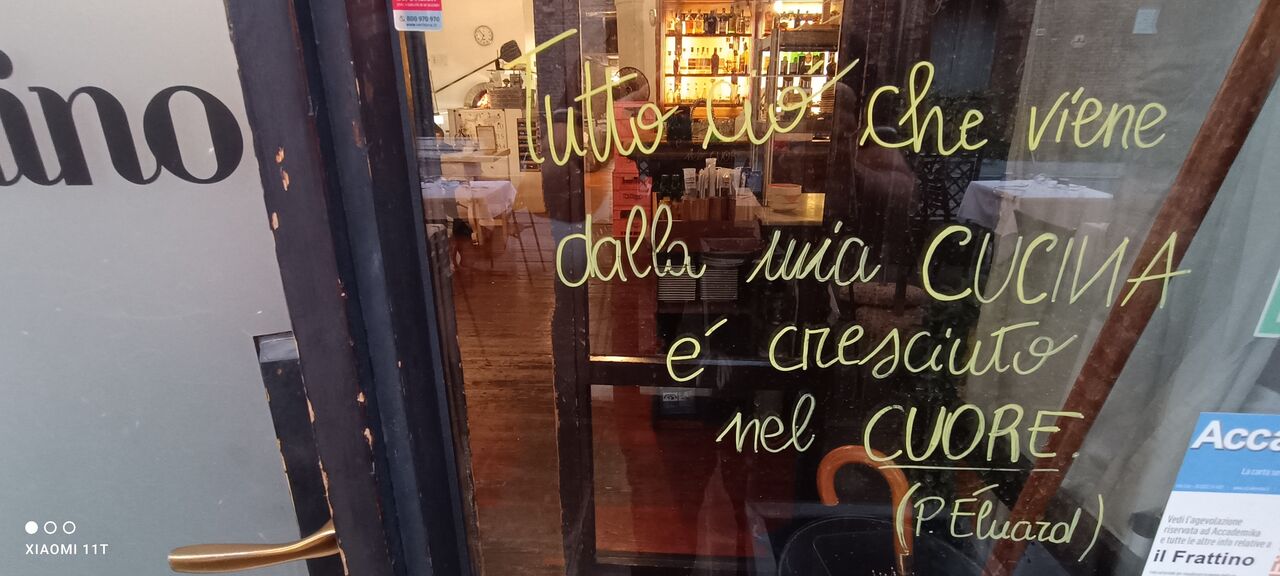 800 970 970
ino
Tutto ciò che viene
dalla mia CUCINA
é cresciuto
nel CUORE.
(P. Éluard)
Acca
La carta
Vedi l'agevolazione
riservata ad Accademika
e tutte le altre info relative a
il Frattino
XIAOMI 11T